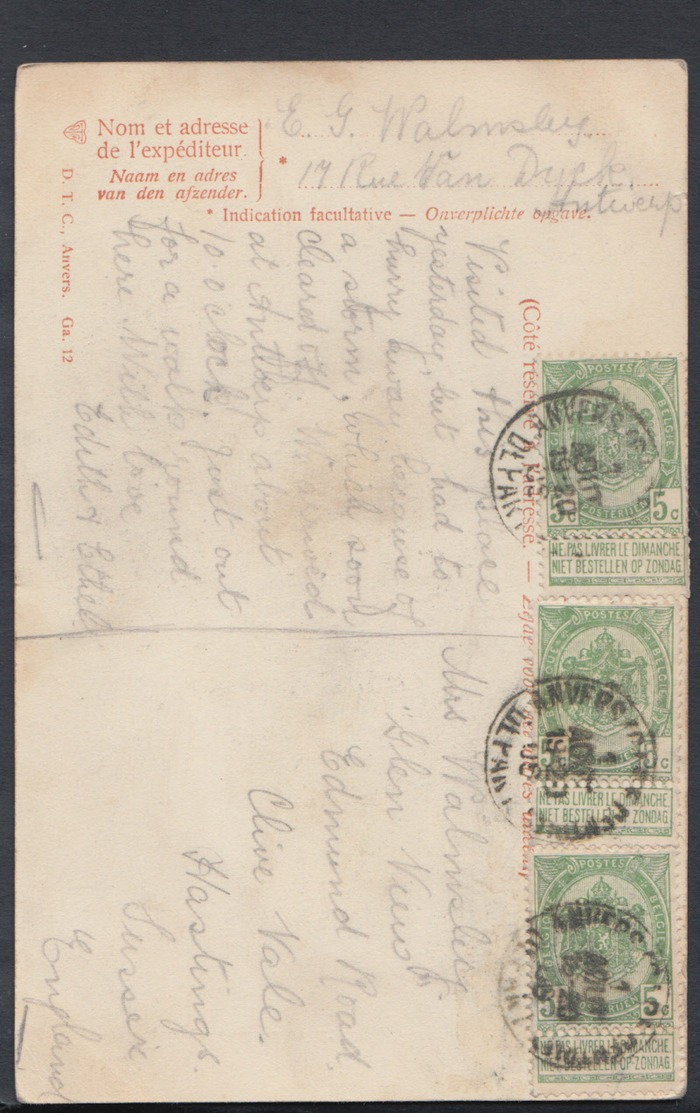 Nom et adresse
de l'expéditeur.
Naam en adres
van den afzender.
* E. G. Walmsley
17 Rue Van Dyck
Antwerp
* Indication facultative — Onverplichte opgave.
D. T. C., Anvers. Ga. 12
(Côté réservé à l'adresse. —
Visited this place
yesterday, but had to
hurry away because of
a storm, which soon
cleared off. We arrived
at Antwerp about
10 o'clock, just out
for a walk round
here With love
Edith & Ethel
Mrs Walmsley
"Glen View"
Edmund Road
Clive Vale.
Hastings.
Sussex
England
POSTES
BELGIE
5c 5c
POSTERIJEN
NE PAS LIVRER LE DIMANCHE
NIET BESTELLEN OP ZONDAG
ANVERS
DEPART
POSTES
BELGIE
NE PAS LIVRER LE DIMANCHE
NIET BESTELLEN OP ZONDAG
ANVERS
DEPART
POSTES
BELGIE
5c
POSTERIJEN
NE PAS LIVRER LE DIMANCHE
NIET BESTELLEN OP ZONDAG
ANVERS